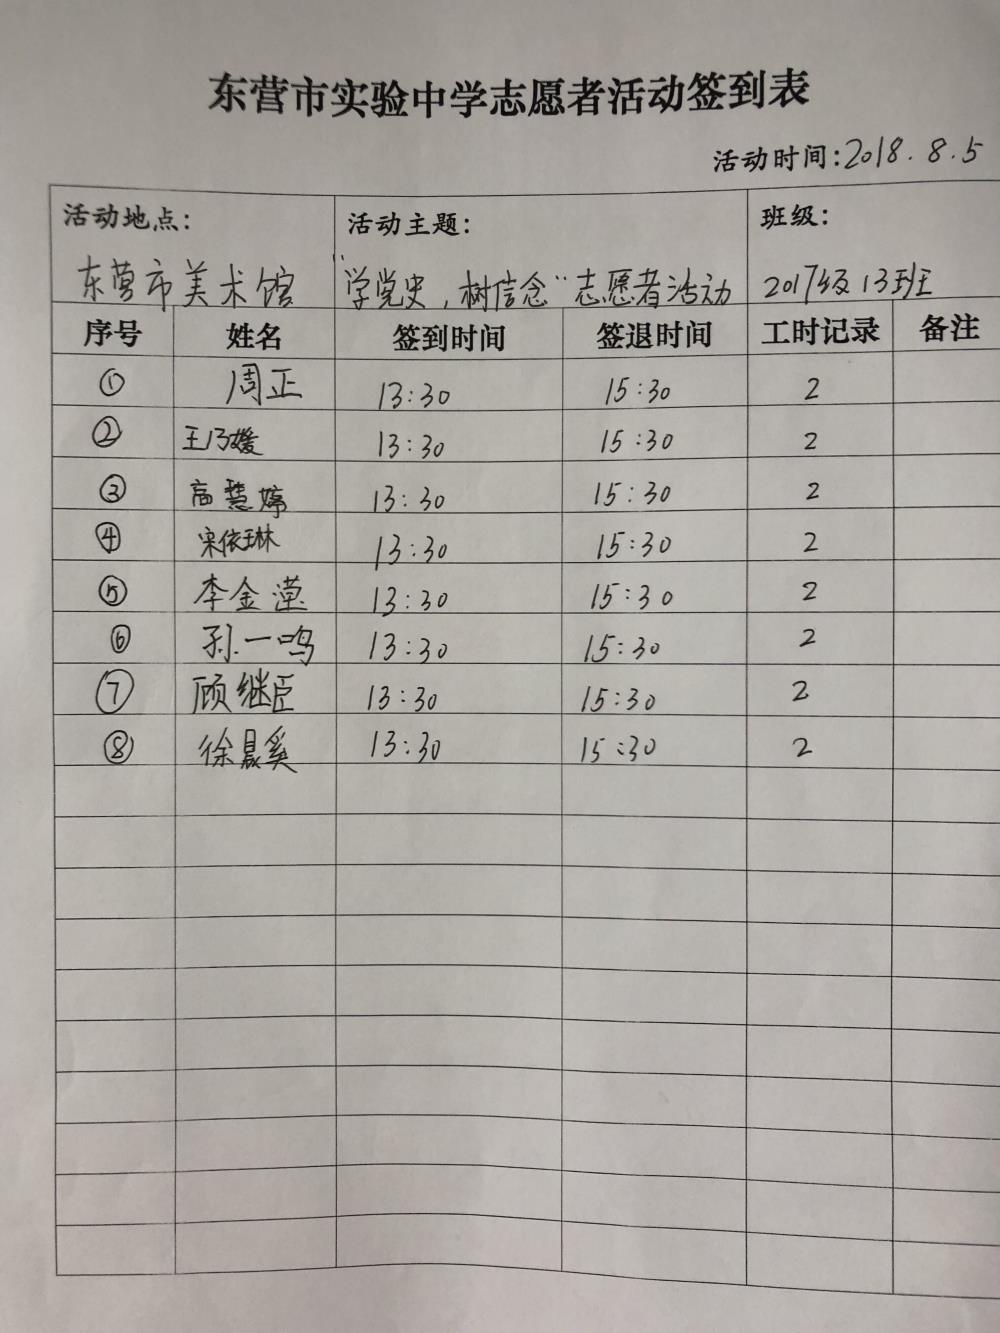 东营市实验中学志愿者活动签到表
活动时间:2018.8.5
活动地点: 活动主题: 班级:
东营市美术馆 “学党史,树信念”志愿者活动 2017级13班
序号 姓名 签到时间 签退时间 工时记录 备注
① 周正 13:30 15:30 2
② 王乃媛 13:30 15:30 2
③ 高慧婷 13:30 15:30 2
④ 宋依琳 13:30 15:30 2
⑤ 李金滢 13:30 15:30 2
⑥ 孙一鸣 13:30 15:30 2
⑦ 顾继臣 13:30 15:30 2
⑧ 徐晨奚 13:30 15:30 2